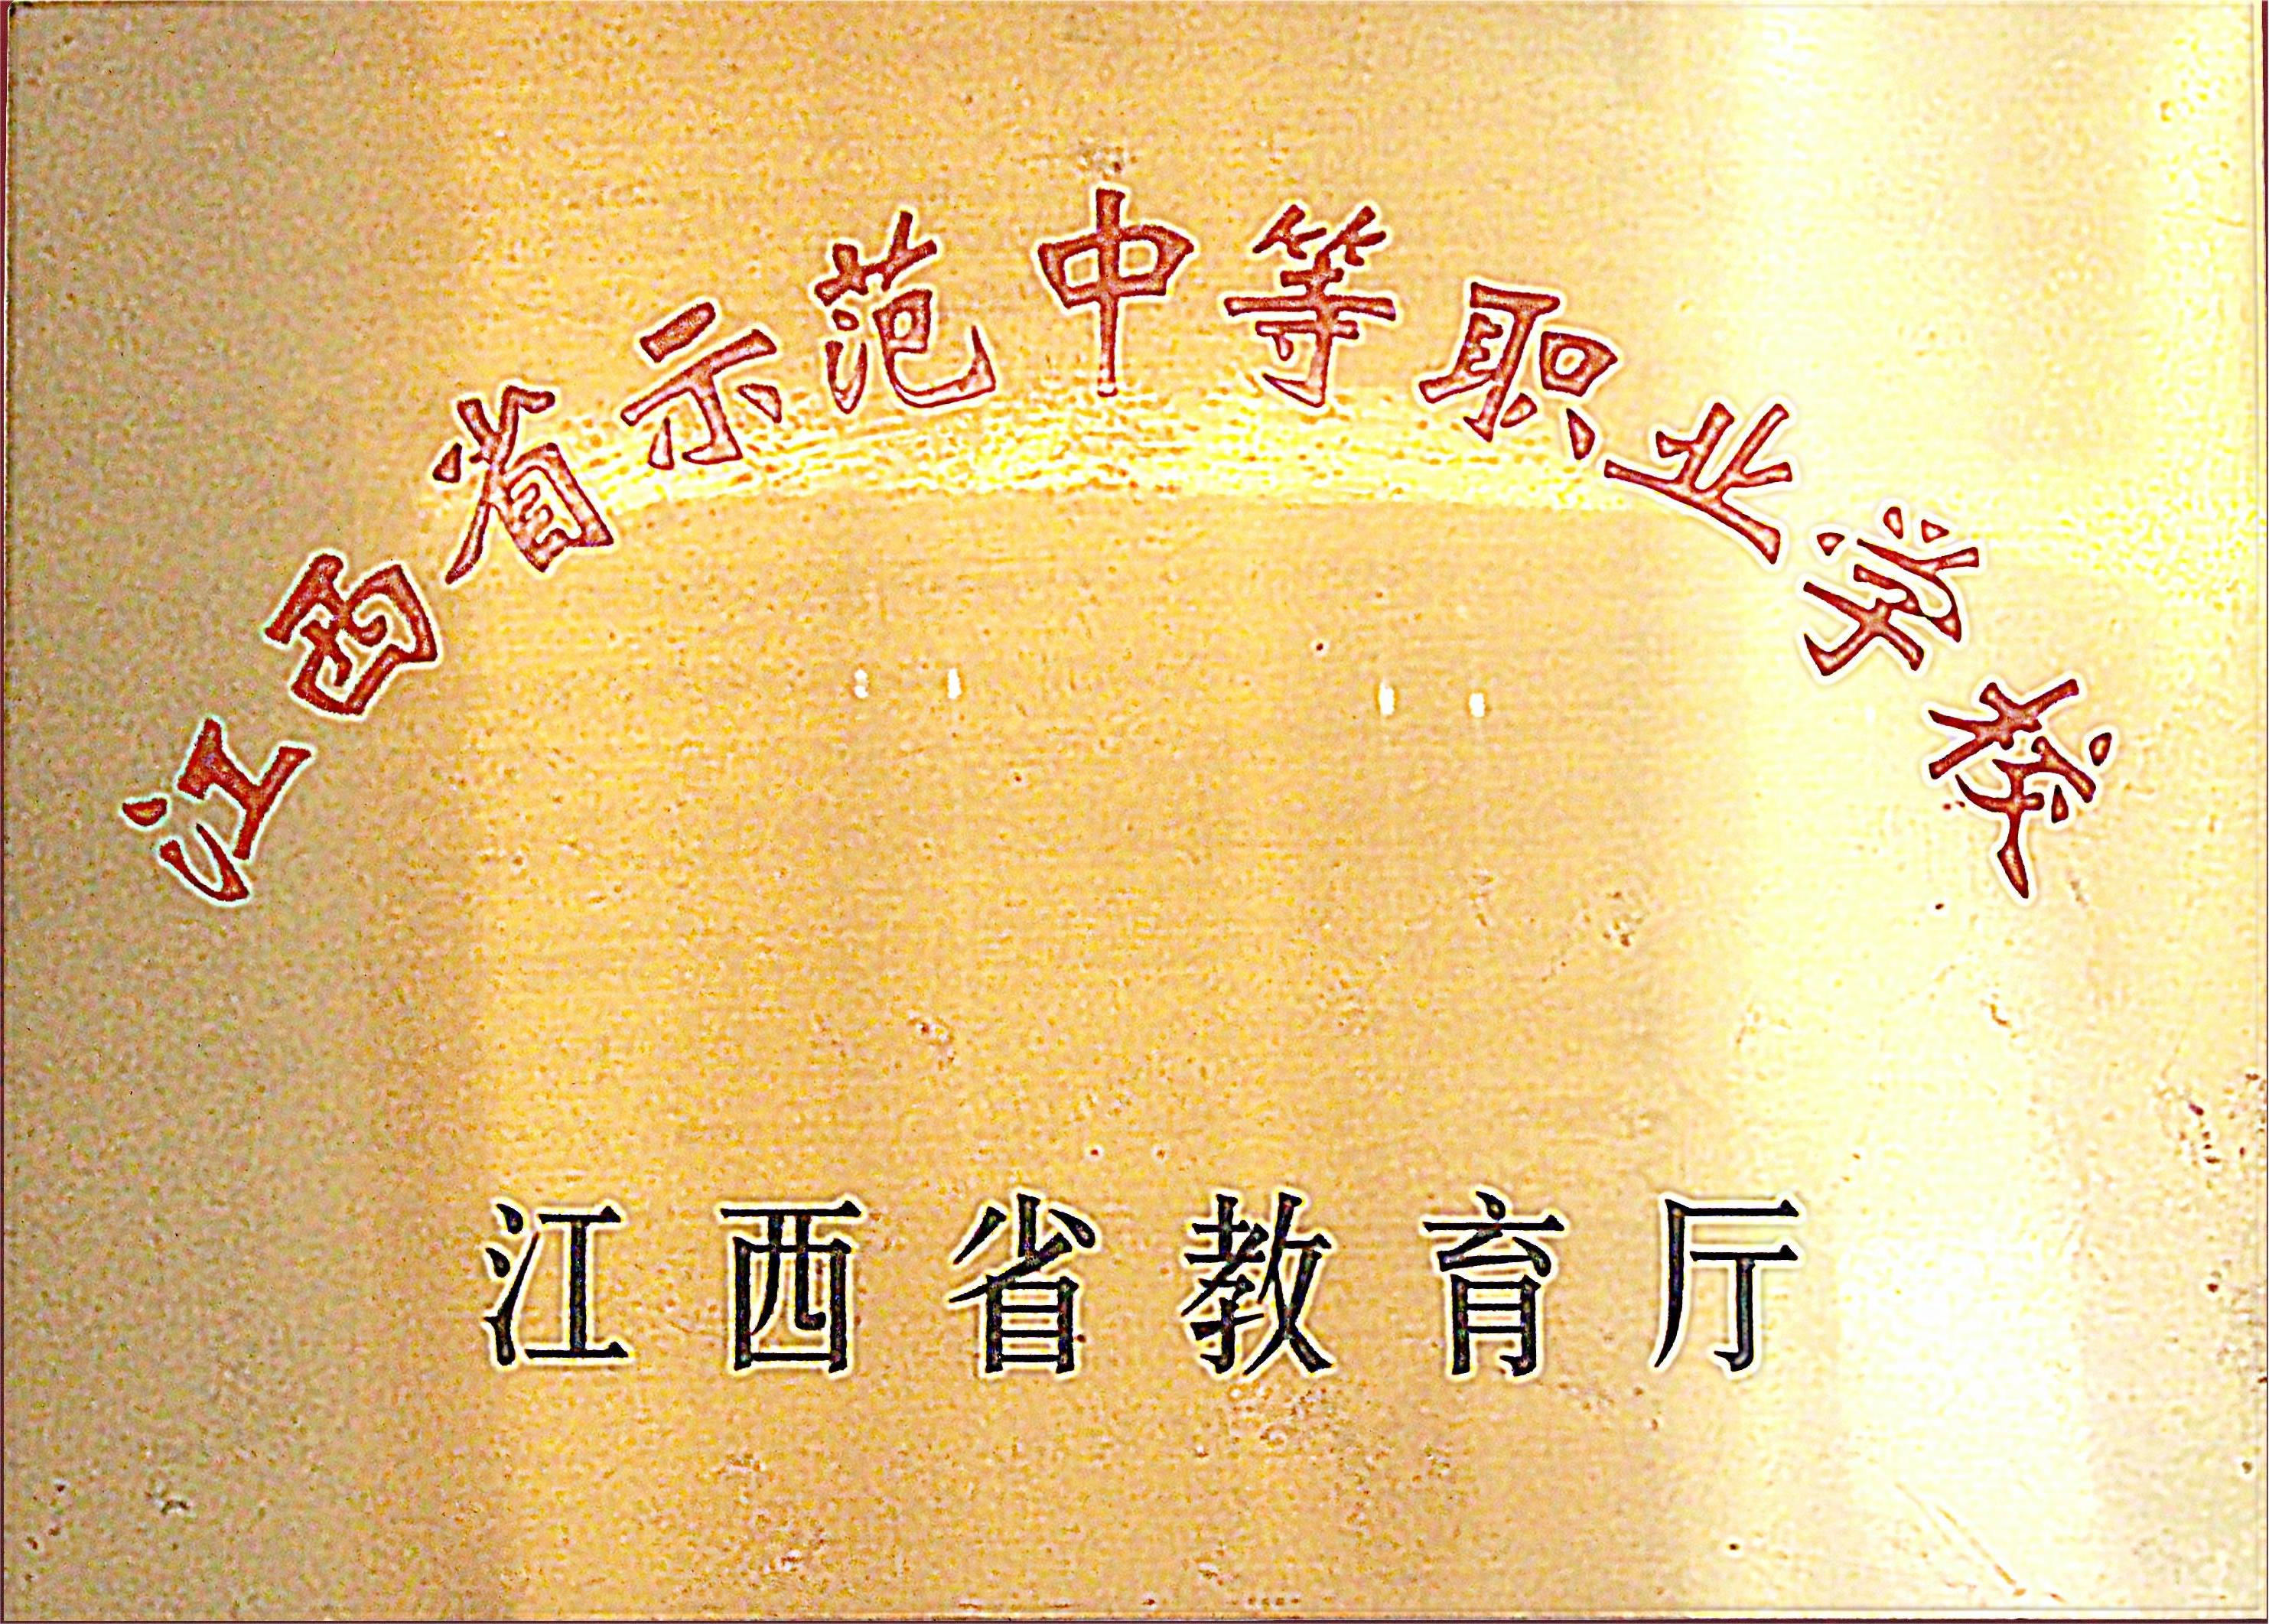 江西省示范中等职业学校
江西省教育厅